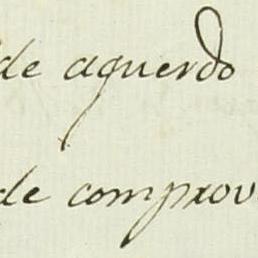 de aquerdo
de comprov